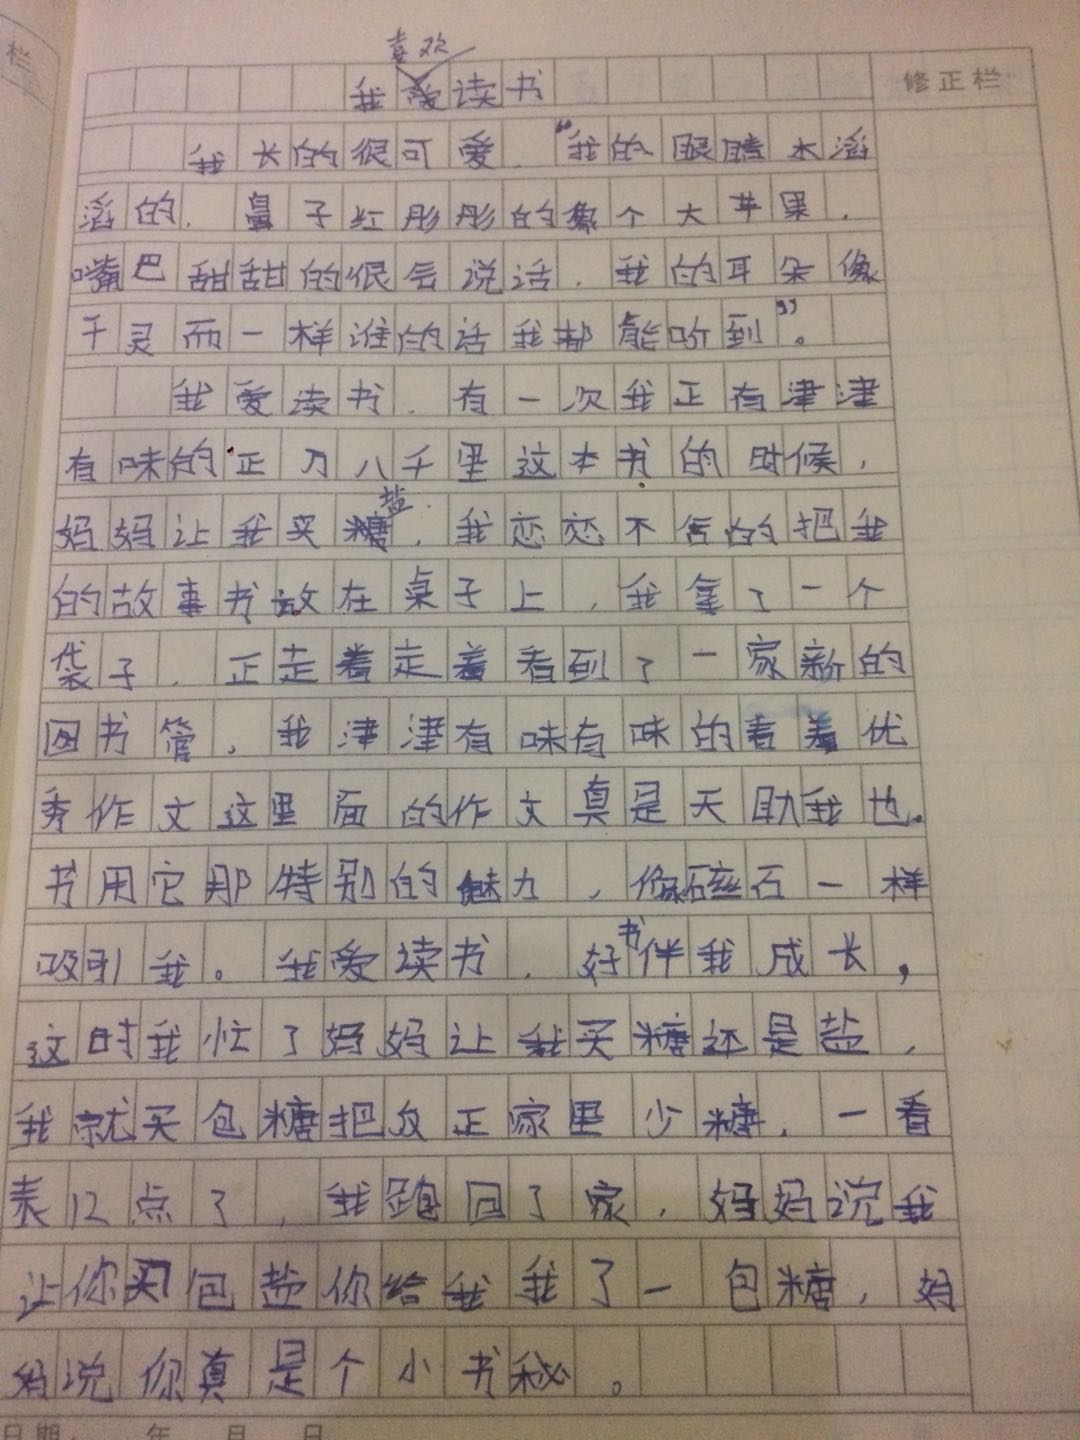 栏
喜欢
我爱读书
修正栏
我长的很可爱，“我的眼睛水滔
滔的，鼻子红彤彤的像个大苹果，
嘴巴甜甜的很会说话，我的耳朵像
千灵而一样谁的话我都能听到”。
我爱读书，有一次我正有津津
有味的正万八千里这本书的时候，
盐
妈妈让我买糖，我恋恋不舍的把我
的故事书放在桌子上，我拿了一个
袋子，正走着走着看到了一家新的
图书管，我津津有味有味的看着优
秀作文这里面的作文真是天助我也。
书用它那特别的魅力，像磁石一样
书
吸引我。我爱读书，好伴我成长，
这时我忙了妈妈让我买糖还是盐，
我就买包糖把反正家里少糖，一看
表12点了，我跑回了家，妈妈说我
让你买包盐你给我我了一包糖，妈
妈说你真是个小书秘。
日期： 年 月 日